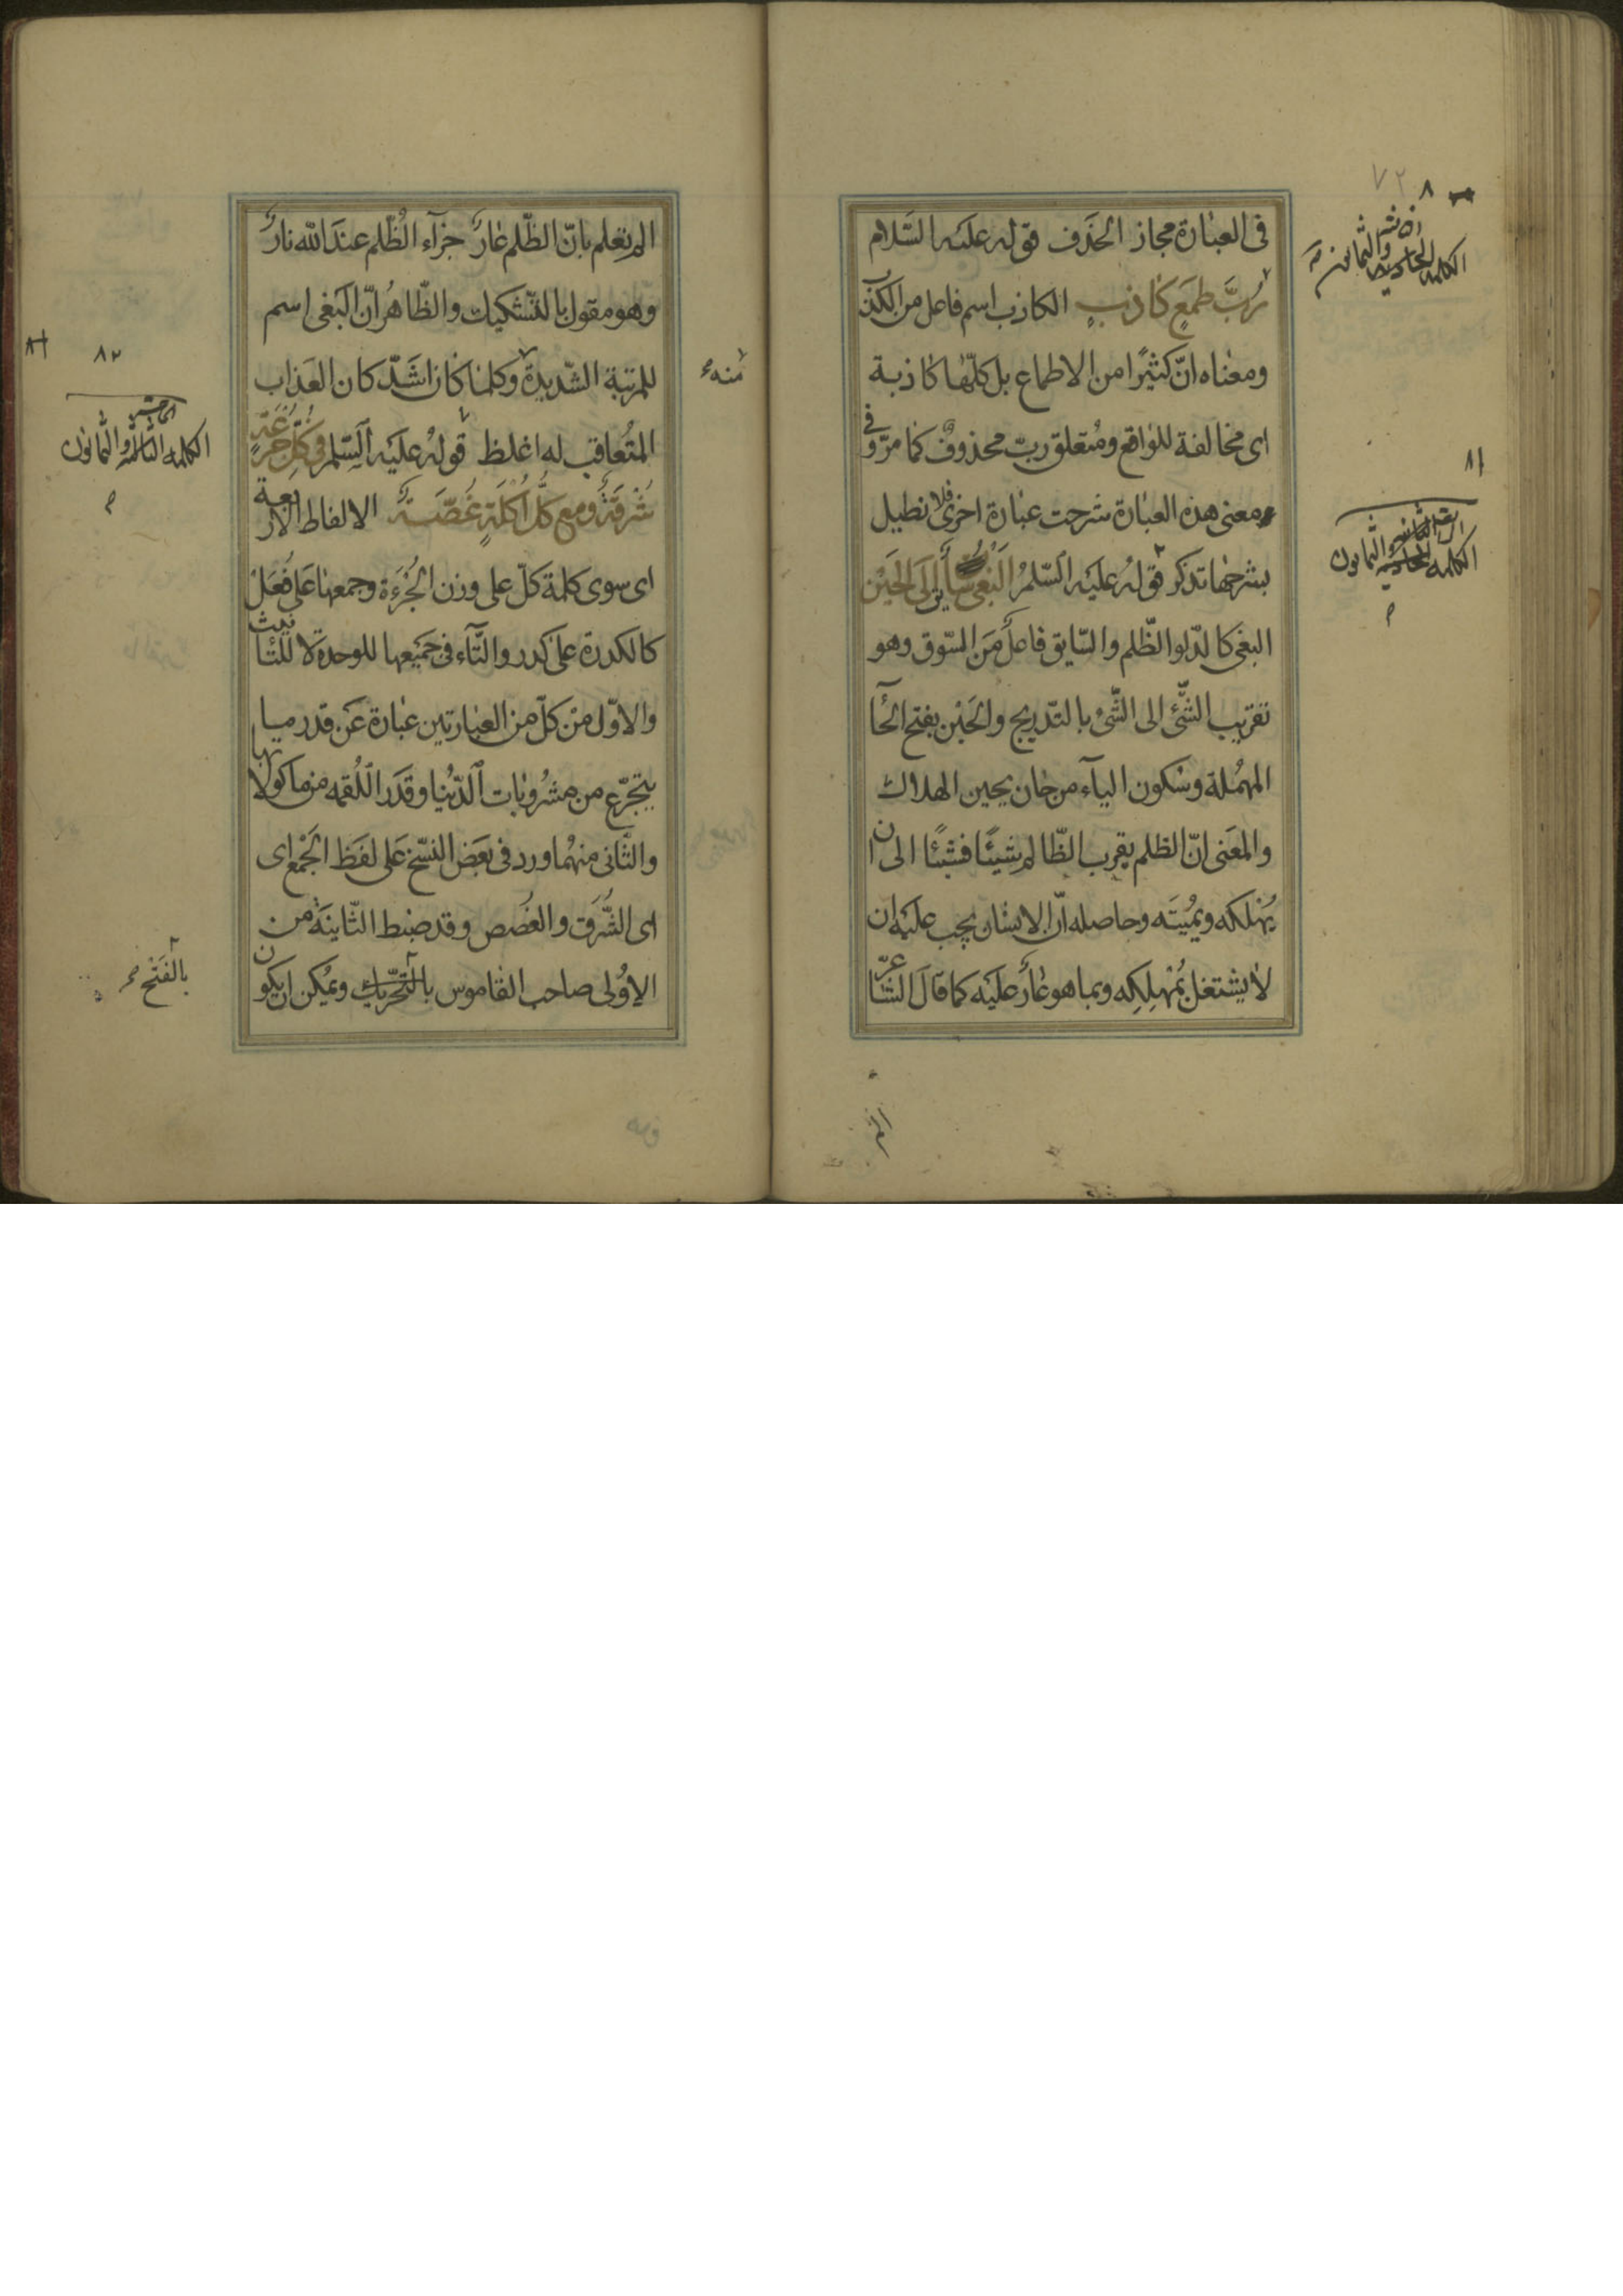 فى العبارة مجاز الحذف قوله عليه السلام
رُبَّ طَمَعٍ كاذبٍ الكاذب اسم فاعل من الكذب
ومعناه انّ كثيرًا من الاطماع بل كلّها كاذبة
اى مخالفة للواقع ومتعلق ربّ محذوف كما مرّ وفى
معنى هذه العبارة شرحت عبارة اخرى فلا نطيل
بشرحها تذكر قوله عليه السّلم البغى سائق الى الحَيْن
البغى كالدّلو الظّلم والسّايق فاعل من السّوق وهو
تقريب الشّئ الى الشّئ بالتدريج والحَيْن بفتح الحآء
المهملة وسكون اليآء من حان يحين الهلاك
والمعنى انّ الظلم يقرب الظّالم شيئًا فشيئًا الى ان
يُهْلكه ويُميته وحاصله انّ الانسان يجب عليه ان
لا يشتغل بمُهْلِكِه وبما هو عارٌ عليه كما قال الشّاعر
الم
٨١
الكلمة الثمانون
الم تعلم بانّ الظّلم عارٌ جزآء الظّلم عند الله نارٌ
وهو مقول بالتّشكيك والظّاهر انّ البغى اسم
للمرتبة الشّديدة وكلما كان اشدّ كان العذاب
المتُعاقب له اغلظ قوله عليه السّلم فى كُلِّ جُرْعَةٍ
شُرْقَةٌ ومع كلّ اُكْلَةٍ غُصَّةٌ الالفاظ الاربعة
اى سوى كلمة كلّ على وزن الجُزْءَة وجمعها على فُعَل
كالكدرة على كدر والتّآء فى جميعها للوحدة لا للتأنيث
والاوّل من كلّ من العبارتين عبارة عن قدر ما
يتجرّع من مشروبات الدّنيا وقدر اللّقمه من ماكولاتها
والثّانى منهما ورد فى بعض النّسخ على لفظ الجمع اى
اى الشُّرَق والغُصص وقد ضبط الثّانية من
الاولى صاحب القاموس بالتّحريك ويمكن ان يكون
منه
٨٢
الكلمة الثالثة والثمانون
بالفَتْح